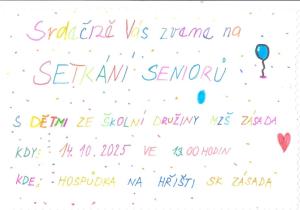 Srdečně Vás zveme na
SETKÁNÍ SENIORŮ
S DĚTMI ZE ŠKOLNÍ DRUŽINY MZŠ ZÁSADA
KDY: 14.10.2025 VE 13.00 HODIN
KDE: HOSPŮDKA NA HŘIŠTI SK ZÁSADA